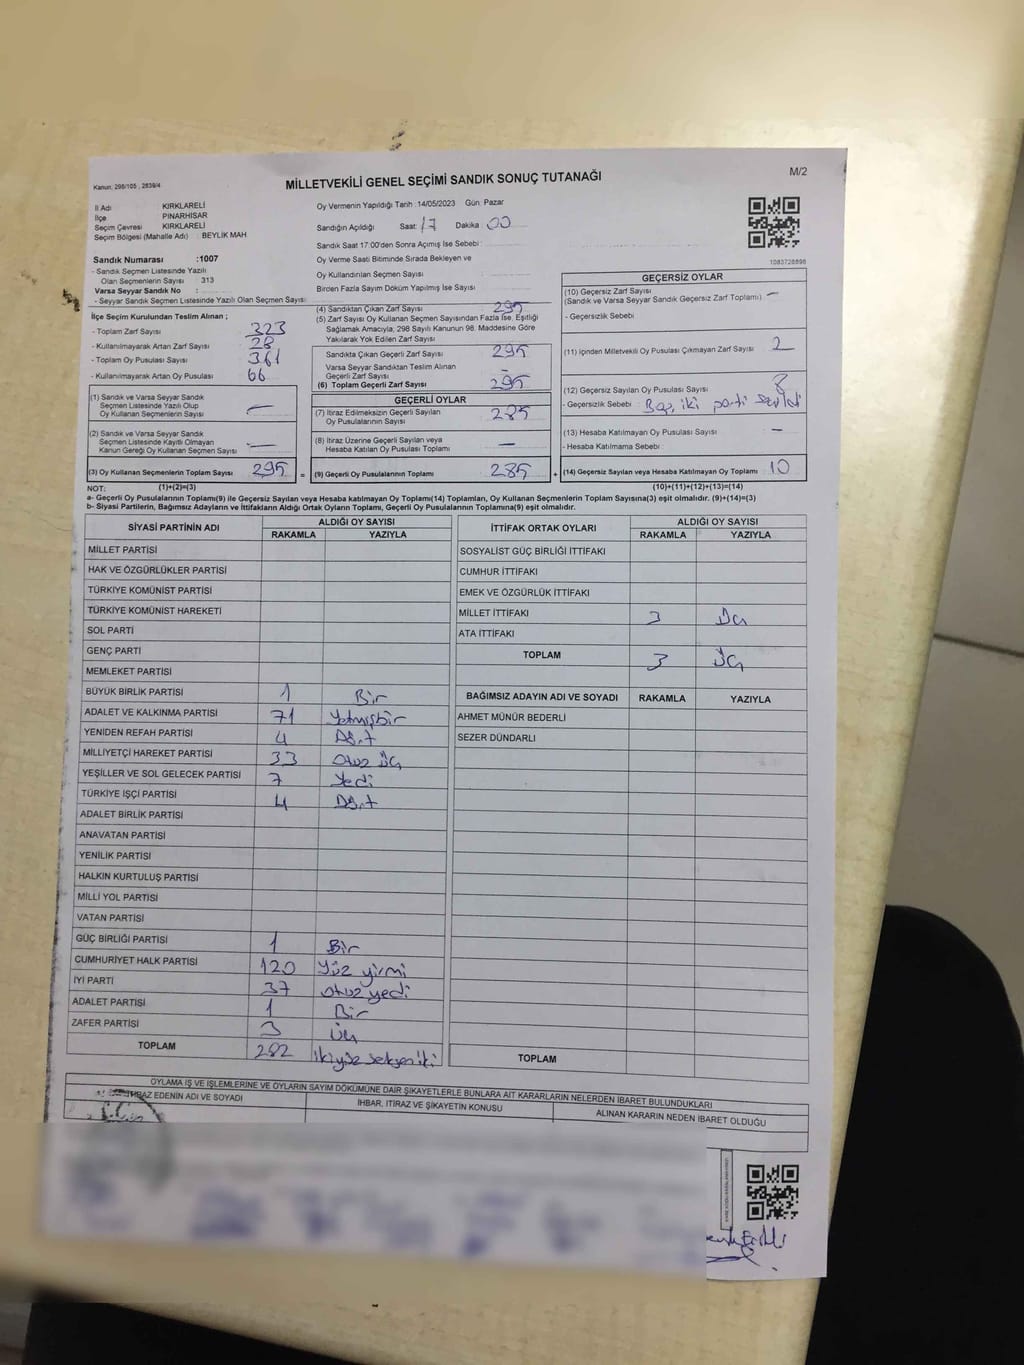 Kanun: 298/105 , 2839/4
MİLLETVEKİLİ GENEL SEÇİMİ SANDIK SONUÇ TUTANAĞI
M/2
İl Adı KIRKLARELİ
İlçe PINARHİSAR
Seçim Çevresi KIRKLARELİ
Seçim Bölgesi (Mahalle Adı) : BEYLİK MAH.
Oy Vermenin Yapıldığı Tarih : 14/05/2023 Gün: Pazar
Sandığın Açıldığı Saat: 17 Dakika 00
Sandık Saat 17:00'den Sonra Açılmış İse Sebebi :
Oy Verme Saati Bitiminde Sırada Bekleyen ve
Oy Kullandırılan Seçmen Sayısı
Birden Fazla Sayım Döküm Yapılmış İse Sayısı
1083728898
Sandık Numarası :1007
- Sandık Seçmen Listesinde Yazılı
Olan Seçmenlerin Sayısı 313
Varsa Seyyar Sandık No :
- Seyyar Sandık Seçmen Listesinde Yazılı Olan Seçmen Sayısı
İlçe Seçim Kurulundan Teslim Alınan ;
- Toplam Zarf Sayısı 323
- Kullanılmayarak Artan Zarf Sayısı 28
- Toplam Oy Pusulası Sayısı 361
- Kullanılmayarak Artan Oy Pusulası 66
(1) Sandık ve Varsa Seyyar Sandık
Seçmen Listesinde Yazılı Olup
Oy Kullanan Seçmenlerin Sayısı —
(2) Sandık ve Varsa Seyyar Sandık
Seçmen Listesinde Kayıtlı Olmayan
Kanun Gereği Oy Kullanan Seçmen Sayısı —
(3) Oy Kullanan Seçmenlerin Toplam Sayısı 295 =
(4) Sandıktan Çıkan Zarf Sayısı 295
(5) Zarf Sayısı Oy Kullanan Seçmen Sayısından Fazla İse, Eşitliği
Sağlamak Amacıyla; 298 Sayılı Kanunun 98. Maddesine Göre
Yakılarak Yok Edilen Zarf Sayısı
Sandıkta Çıkan Geçerli Zarf Sayısı 295
Varsa Seyyar Sandıktan Teslim Alınan
Geçerli Zarf Sayısı —
(6) Toplam Geçerli Zarf Sayısı 295
GEÇERLİ OYLAR
(7) İtiraz Edilmeksizin Geçerli Sayılan
Oy Pusulalarının Sayısı 285
(8) İtiraz Üzerine Geçerli Sayılan veya
Hesaba Katılan Oy Pusulası Toplamı —
(9) Geçerli Oy Pusulalarının Toplamı 285 +
GEÇERSİZ OYLAR
(10) Geçersiz Zarf Sayısı
(Sandık ve Varsa Seyyar Sandık Geçersiz Zarf Toplamı) —
- Geçersizlik Sebebi
(11) İçinden Milletvekili Oy Pusulası Çıkmayan Zarf Sayısı 2
(12) Geçersiz Sayılan Oy Pusulası Sayısı 8
- Geçersizlik Sebebi : iki parti
(13) Hesaba Katılmayan Oy Pusulası Sayısı —
- Hesaba Katılmama Sebebi :
(14) Geçersiz Sayılan veya Hesaba Katılmayan Oy Toplamı 10
NOT: (1)+(2)=(3) (10)+(11)+(12)+(13)=(14)
a- Geçerli Oy Pusulalarının Toplamı(9) ile Geçersiz Sayılan veya Hesaba katılmayan Oy Toplamı(14) Toplamları, Oy Kullanan Seçmenlerin Toplam Sayısına(3) eşit olmalıdır. (9)+(14)=(3)
b- Siyasi Partilerin, Bağımsız Adayların ve İttifakların Aldığı Ortak Oyların Toplamı, Geçerli Oy Pusulalarının Toplamına(9) eşit olmalıdır.
SİYASİ PARTİNİN ADI ALDIĞI OY SAYISI
RAKAMLA YAZIYLA
MİLLET PARTİSİ
HAK VE ÖZGÜRLÜKLER PARTİSİ
TÜRKİYE KOMÜNİST PARTİSİ
TÜRKİYE KOMÜNİST HAREKETİ
SOL PARTİ
GENÇ PARTİ
MEMLEKET PARTİSİ
BÜYÜK BİRLİK PARTİSİ 1 Bir
ADALET VE KALKINMA PARTİSİ 71 Yetmişbir
YENİDEN REFAH PARTİSİ 4 Dört
MİLLİYETÇİ HAREKET PARTİSİ 33 Otuz Üç
YEŞİLLER VE SOL GELECEK PARTİSİ 7 Yedi
TÜRKİYE İŞÇİ PARTİSİ 4 Dört
ADALET BİRLİK PARTİSİ
ANAVATAN PARTİSİ
YENİLİK PARTİSİ
HALKIN KURTULUŞ PARTİSİ
MİLLİ YOL PARTİSİ
VATAN PARTİSİ
GÜÇ BİRLİĞİ PARTİSİ 1 Bir
CUMHURİYET HALK PARTİSİ 120 Yüz yirmi
İYİ PARTİ 37 otuz yedi
ADALET PARTİSİ 1 Bir
ZAFER PARTİSİ 3 Üç
TOPLAM 282 ikiyüz seksen iki
İTTİFAK ORTAK OYLARI ALDIĞI OY SAYISI
RAKAMLA YAZIYLA
SOSYALİST GÜÇ BİRLİĞİ İTTİFAKI
CUMHUR İTTİFAKI
EMEK VE ÖZGÜRLÜK İTTİFAKI
MİLLET İTTİFAKI 3 Üç
ATA İTTİFAKI
TOPLAM 3 Üç
BAĞIMSIZ ADAYIN ADI VE SOYADI RAKAMLA YAZIYLA
AHMET MÜNÜR BEDERLİ
SEZER DÜNDARLI
TOPLAM
OYLAMA İŞ VE İŞLEMLERİNE VE OYLARIN SAYIM DÖKÜMÜNE DAİR ŞİKAYETLERLE BUNLARA AİT KARARLARIN NELERDEN İBARET BULUNDUKLARI
İTİRAZ EDENİN ADI VE SOYADI İHBAR, İTİRAZ VE ŞİKAYETİN KONUSU ALINAN KARARIN NEDEN İBARET OLDUĞU
T.C.